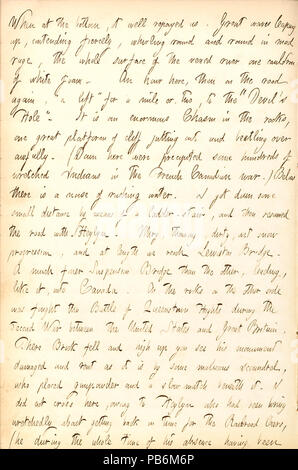 When at the bottom, it well repayed us. Great waves leaping
up, contending fiercely, whirling round and round in mad
rage, the whole surface of the vexed river one cauldron
of white foam. An hour here, then on the road
again, "a lift" for a mile or two, to the "Devil's
Hole." It is an enormous Chasm in the rocks,
one great platform of cliff jutting out and beetling over
awfully. (Down here were precipited some hundreds of
wretched Indians in the French Canadian war.) Below
there is a noise of rushing water. I got down some
small distance by means of a ladder-stair, and then resumed
the road with Heylyn. Very thawy, dirty, wet snow
progression, and at length we reach Lewiston Bridge.
A much finer Suspension Bridge than the other, leading,
like it, into Canada. On the rocks on the other side
was fought the Battle of Queenstown Heights during the
Second War between the United States and Great Britain.
There Brock fell and high up you see his monument
damaged and rent as it is by some malicious scoundrel,
who placed gunpowder and a slow match beneath it. I
did not cross here, owing to Heylyn who had been boring
wretchedly about getting back in time for the Railroad Cars,
(he during the whole time of his absence having been
alamy
PB6M6P